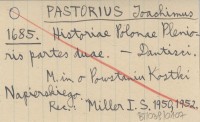 PASTORIUS Joachimus
1685. Historiae Polonae Plenio-
ris partes duae. – Dantisci.
M. in. o Powstaniu Kostki
Napierskiego.
Rec.: Miller I. S. 1950, 1952.